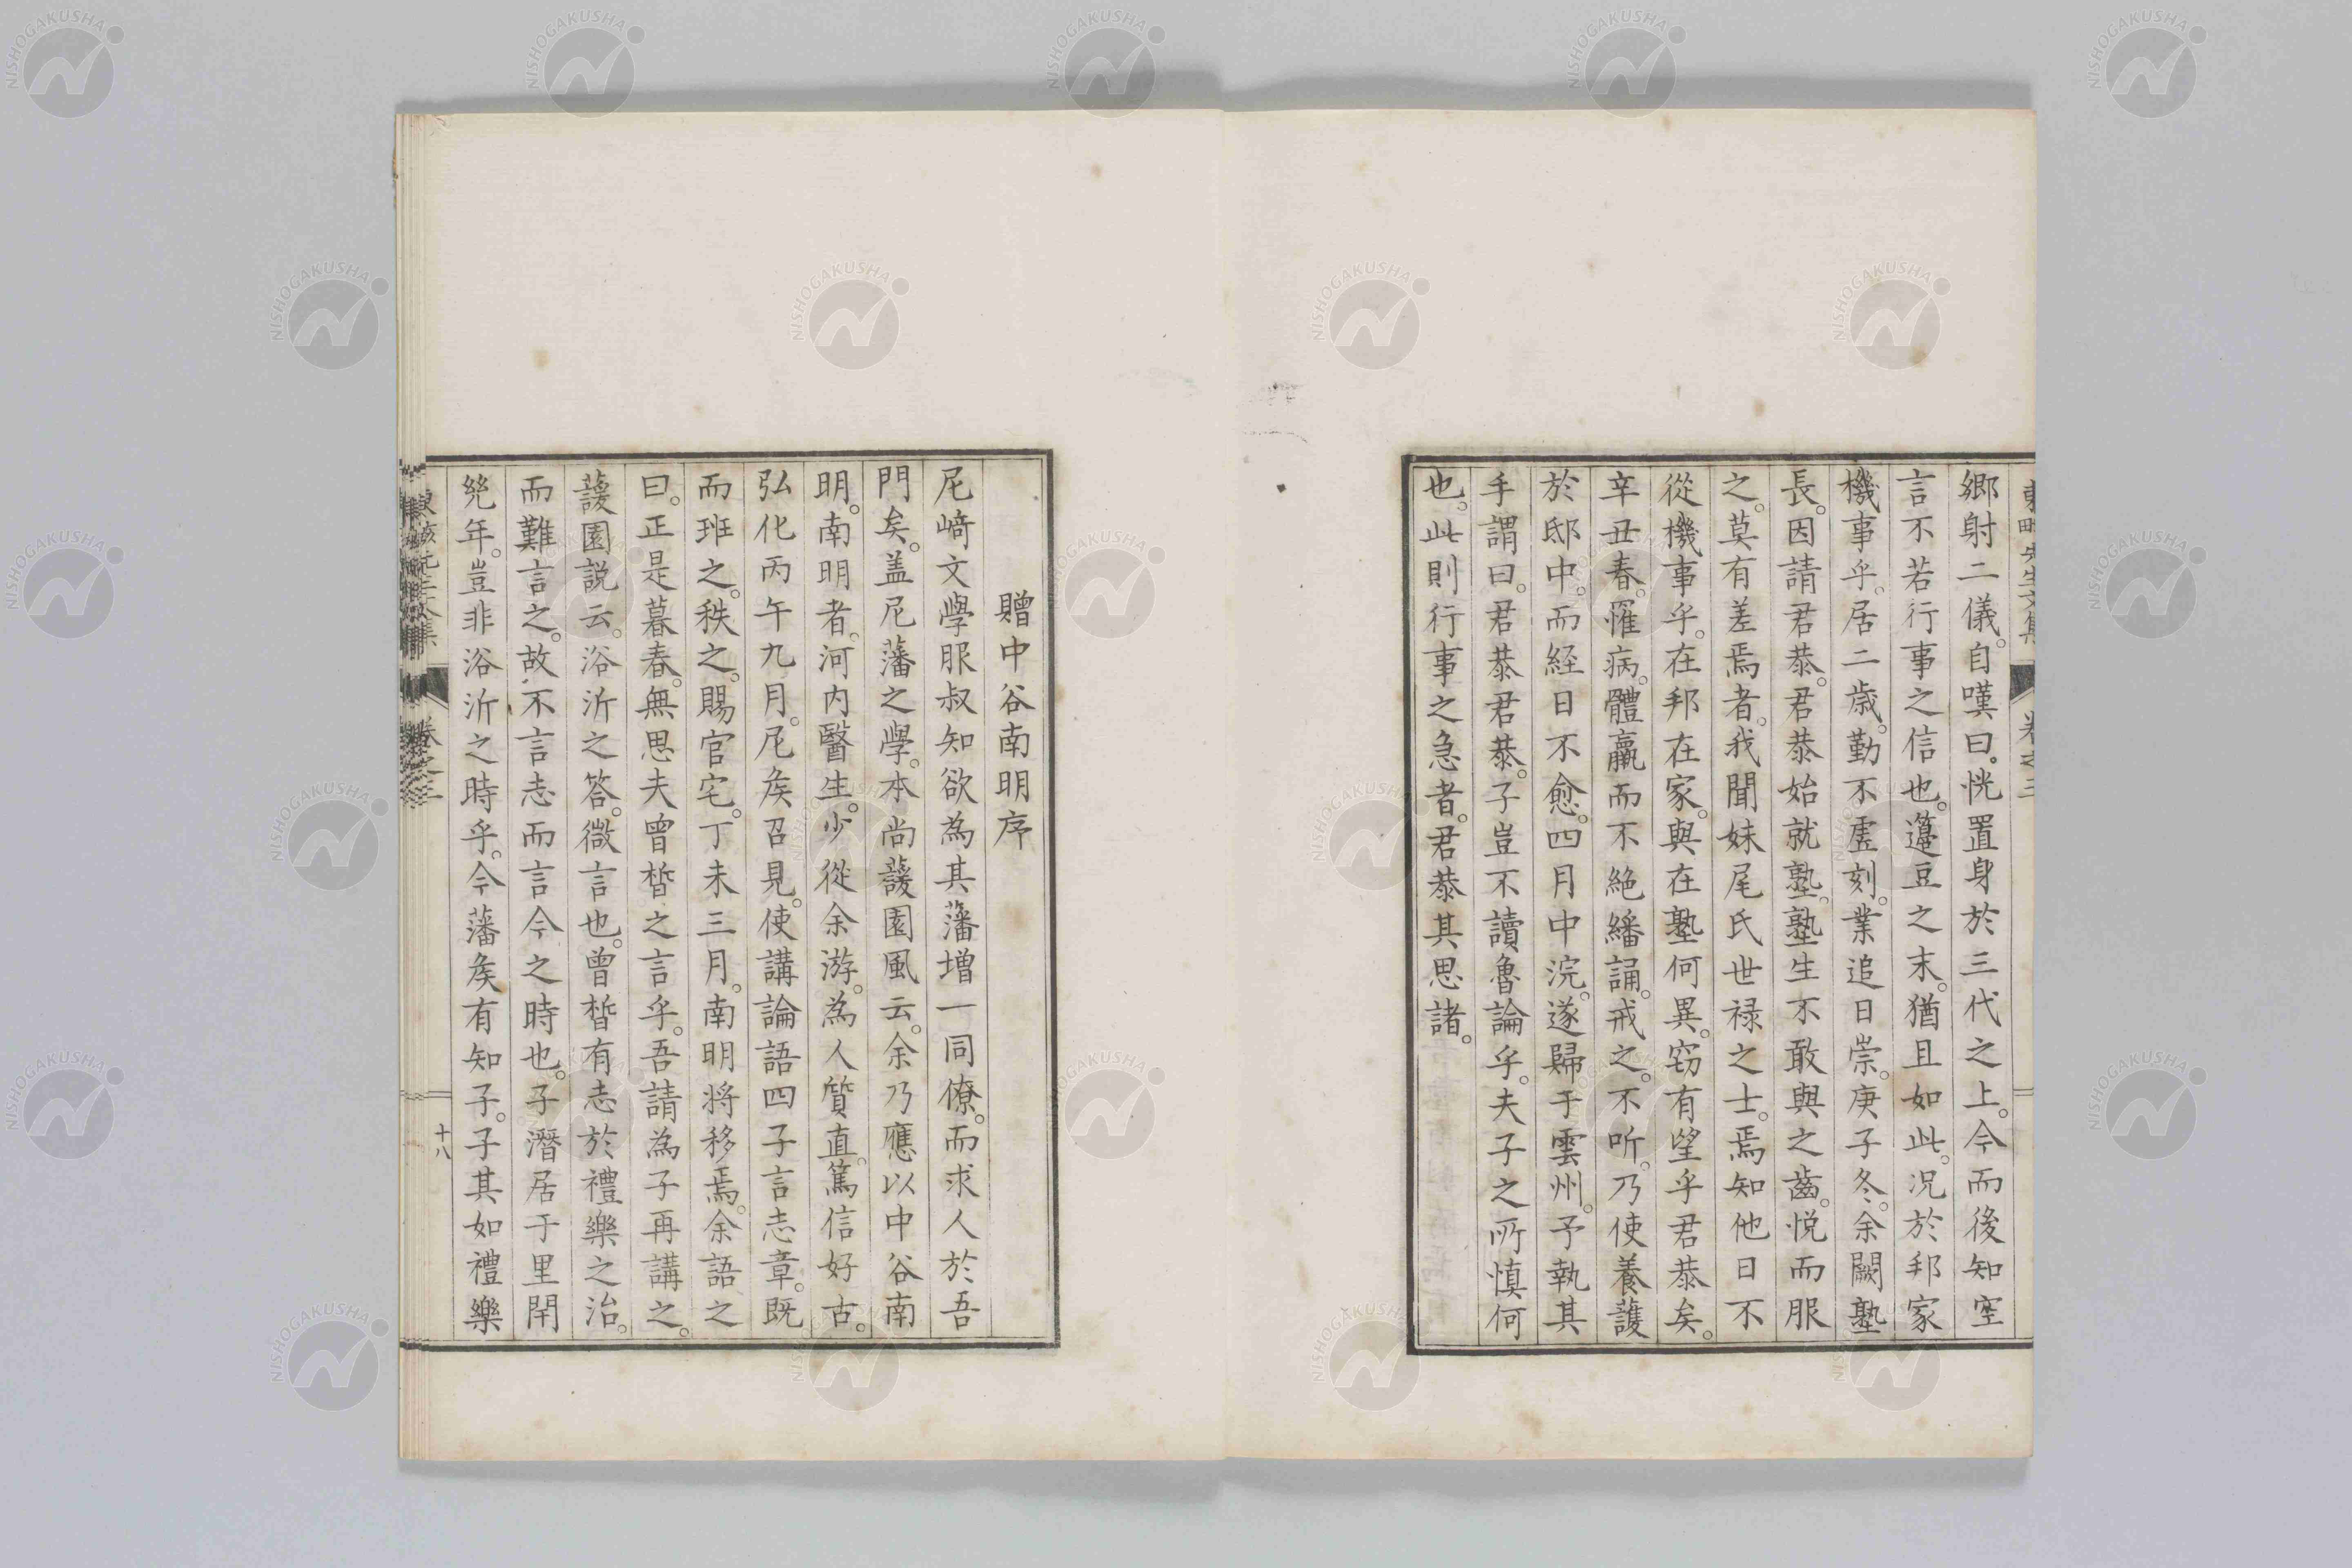 鄉射二儀。自嘆曰。恍置身於三代之上。今而後知空
言不若行事之信也。籩豆之末。猶且如此。況於邦家
機事乎。居二歳。勤不虗刻。業追日崇。庚子冬。余闕塾
長。因請君恭。君恭始就塾。塾生不敢與之齒。悅而服
之。莫有差焉者。我聞妹尾氏世禄之士。焉知他日不
從機事乎。在邦在家。與在塾何異。窃有望乎君恭矣。
辛丑春。罹病。體羸而不絶繙誦。戒之。不听。乃使養護
於邸中。而経日不愈。四月中浣。遂歸于雲州。予執其
手謂曰。君恭君恭。子豈不讀魯論乎。夫子之所慎何
也。此則行事之急者。君恭其思諸。
贈中谷南明序
尼﨑文學服叔知欲為其藩增一同僚。而求人於吾
門矣。盖尼藩之學。本尚蘐園風云。余乃應以中谷南
明。南明者。河内醫生。少從余游。為人質直。篤信好古。
弘化丙午九月。尼矦召見。使講論語四子言志章。既
而班之。秩之。賜官宅。丁未三月。南明将移焉。余語之
曰。正是暮春。無思夫曾晳之言乎。吾請為子再講之。
蘐園説云。浴沂之答。微言也。曾晳有志於禮樂之治。
而難言之。故不言志而言今之時也。子潛居于里閈
兊年。豈非浴沂之時乎。今藩矦有知子。子其如禮樂
卷之三
十八